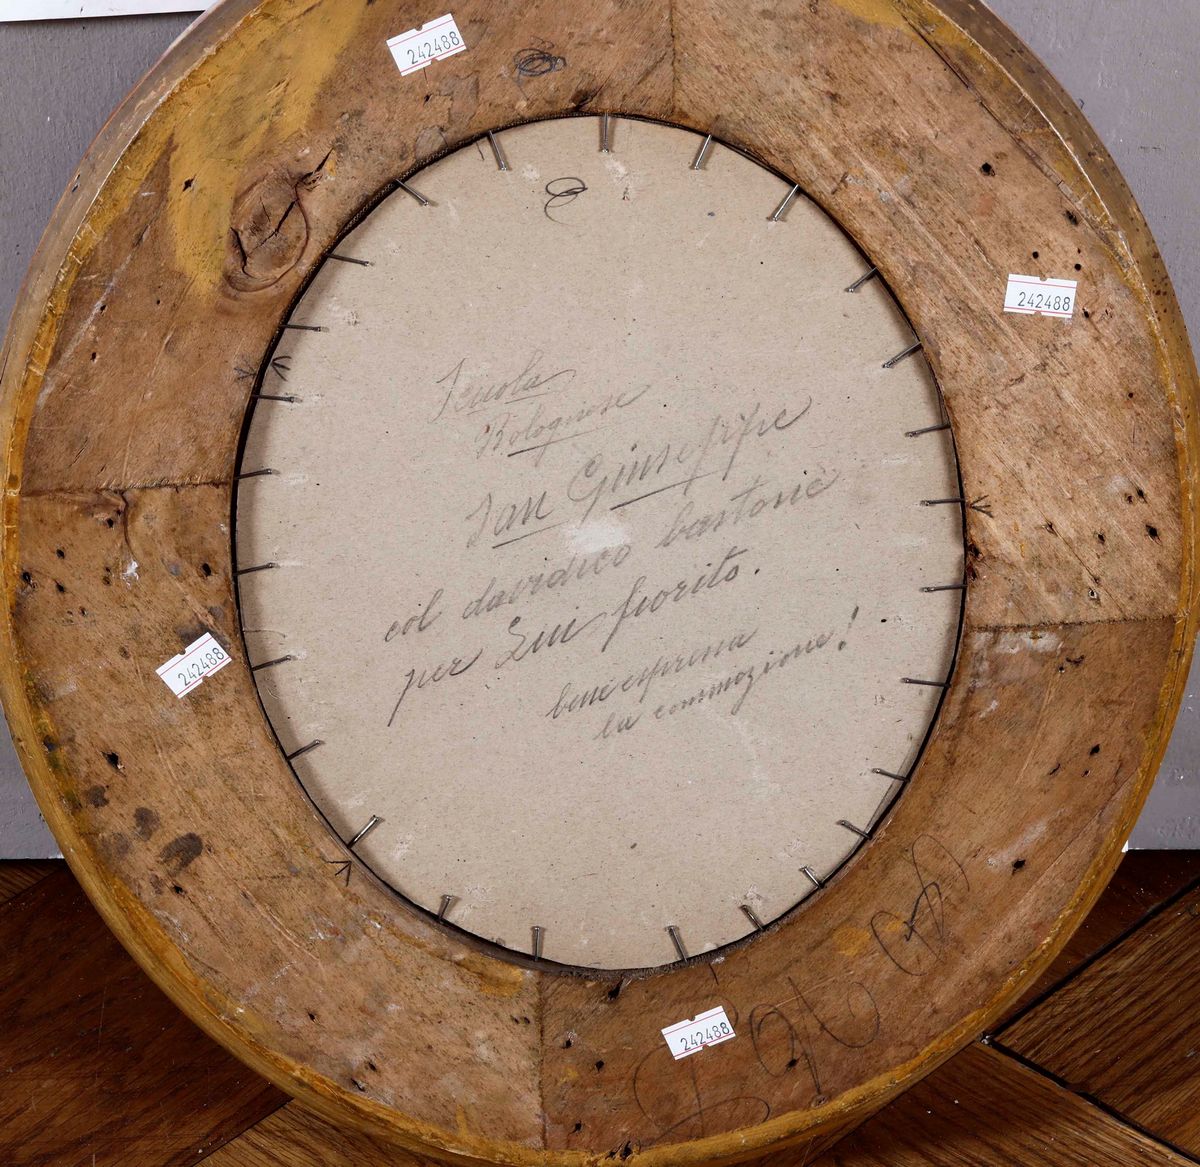 242488
242488
Scuola
Bolognese
San Giuseppe
col davidico bastone
per Lui fiorito.
bene espressa
la commozione!
242488
242488